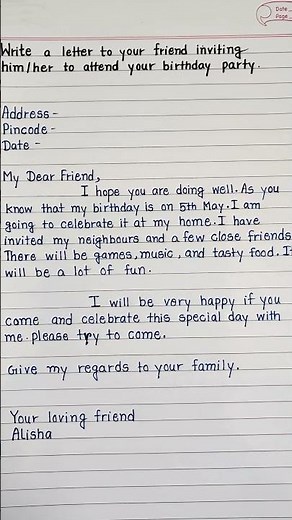 Date
Page
Write a letter to your friend inviting
him/her to attend your birthday party.
Address-
Pincode-
Date -
My Dear Friend,
I hope you are doing well. As you
know that my birthday is on 5th May. I am
going to celebrate it at my home. I have
invited my neighbours and a few close friends
There will be games, music, and tasty food. It
will be a lot of fun.
I will be very happy if you
come and celebrate this special day with
me. please try to come.
Give my regards to your family.
Your loving friend
Alisha